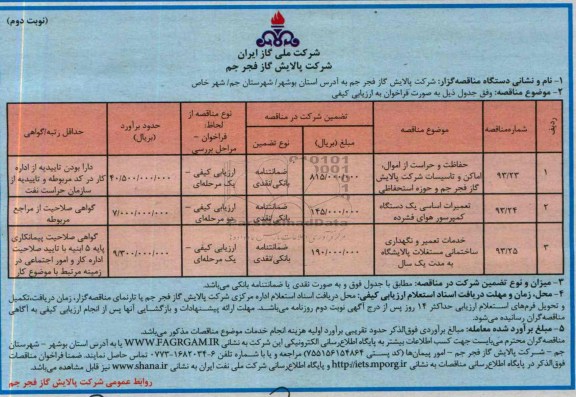 (نوبت دوم)
شرکت ملی گاز ایران
شرکت پالایش گاز فجر جم
۱- نام و نشانی دستگاه مناقصه‌گزار: شرکت پالایش گاز فجر جم به آدرس استان بوشهر/ شهرستان جم/ شهر خاص
۲- موضوع مناقصه: وفق جدول ذیل به صورت فراخوان به ارزیابی کیفی
ردیف | شماره‌مناقصه | موضوع مناقصه | تضمین شرکت در مناقصه: مبلغ (ریال) | نوع تضمین | نوع مناقصه از لحاظ: فراخوان - مراحل بررسی | حدود برآورد (ریال) | حداقل رتبه/گواهی
۱ | ۹۳/۲۳ | حفاظت و حراست از اموال، اماکن و تاسیسات شرکت پالایش گاز فجر جم و حوزه استحفاظی | ۸۱۵/۰۰۰/۵۰۰ | ضمانتنامه بانکی/نقدی | ارزیابی کیفی - یک مرحله‌ای | ۴۰/۵۰۰/۰۰۰/۰۰۰ | دارا بودن تاییدیه از اداره کار در کد مربوطه و تاییدیه از سازمان حراست نفت
۲ | ۹۳/۲۴ | تعمیرات اساسی یک دستگاه کمپرسور هوای فشرده | ۱۴۵/۰۰۰/۰۰۰ | ضمانتنامه بانکی/نقدی | ارزیابی کیفی - دو مرحله‌ای | ۷/۰۰۰/۰۰۰/۰۰۰ | گواهی صلاحیت از مراجع مربوطه
۳ | ۹۳/۲۵ | خدمات تعمیر و نگهداری ساختمانی مستغلات پالایشگاه به مدت یک سال | ۱۹۰/۰۰۰/۰۰۰ | ضمانتنامه بانکی/نقدی | ارزیابی کیفی - یک مرحله‌ای | ۹/۳۰۰/۰۰۰/۰۰۰ | گواهی صلاحیت پیمانکاری پایه ۵ ابنیه یا تایید صلاحیت اداره کار و امور اجتماعی در زمینه مرتبط با موضوع کار
۳- میزان و نوع تضمین شرکت در مناقصه: مطابق با جدول فوق و به صورت نقدی یا ضمانتنامه بانکی می‌باشد.
۴- محل، زمان و مهلت دریافت اسناد استعلام ارزیابی کیفی: محل دریافت اسناد استعلام اداره مرکزی شرکت پالایش گاز فجر جم یا تارنمای مناقصه‌گزار، زمان دریافت،تکمیل
و تحویل فرم‌های استعلام ارزیابی حداکثر ۱۴ روز پس از درج آگهی نوبت دوم روزنامه می‌باشند. مهلت ارائه پیشنهادات و بازگشایی آنها پس از انجام ارزیابی کیفی به آگاهی
مناقصه‌گران رسانیده می‌شود.
۵- مبلغ برآورد شده معامله: مبالغ برآوردی فوق‌الذکر حدود تقریبی برآورد اولیه هزینه انجام خدمات موضوع مناقصات مذکور می‌باشد.
مناقصه‌گران محترم می‌بایست جهت کسب اطلاعات بیشتر به پایگاه اطلاع‌رسانی الکترونیکی این شرکت به نشانی WWW.FAGRGAM.IR یا به آدرس استان بوشهر - شهرستان
جم - شرکت پالایش گاز فجر جم - امور پیمان‌ها (کد پستی ۷۵۵۱۵۶۱۵۴۸۶۴) مراجعه و یا با شماره تلفن ۰۷۷۳-۱۶۸۲۰۳۴۰۶ تماس حاصل نمایند. ضمنا فراخوان مناقصات
فوق‌الذکر در پایگاه اطلاع‌رسانی مناقصات به نشانی http://iets.mporg.ir و پایگاه اطلاع‌رسانی شرکت ملی نفت ایران به نشانی www.shana.ir نیز قابل مشاهده می‌باشد.
روابط عمومی شرکت پالایش گاز فجر جم